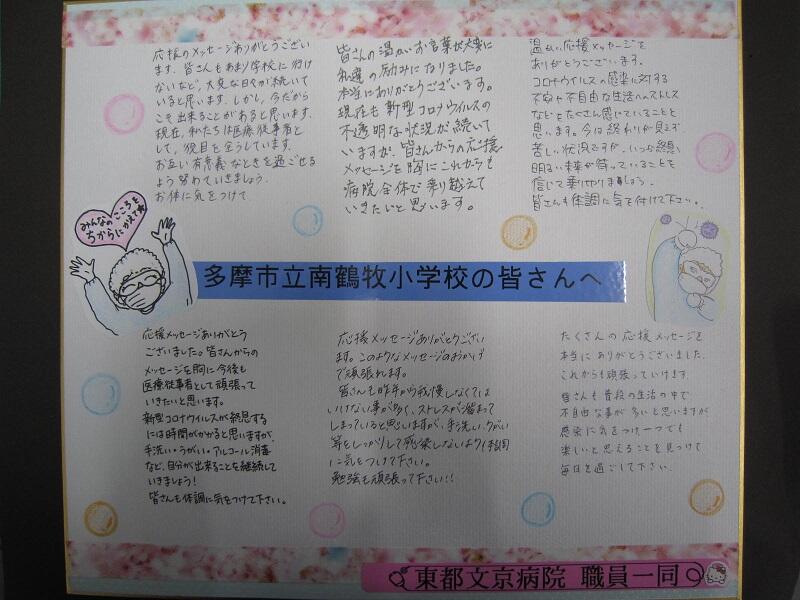 応援のメッセージありがとうござい
ます。皆さんもあまり学校に行け
ないなど、大変な日々が続いて
いると思います。しかし、今だから
こそ出来ることがあると思います。
現在、私たちは医療従事者と
して、役目を全うしています。
お互い有意義なときを過ごせる
よう努めていきましょう。
お体に気をつけて。
皆さんの温かいお言葉が大変に
私達の励みになりました。
本当にありがとうございます。
現在も新型コロナウイルスの
不透明な状況が続いて
いますが、皆さんからの応援
メッセージを胸にこれからも
病院全体で乗り越えて
いきたいと思います。
温かい応援メッセージを
ありがとうございます。
コロナウイルスの感染に対する
不安や不自由な生活へのストレス
などをたくさん感じていることと
思います。今は終わりが見えず、
苦しい状況ですが、いつか終息し
明るい未来が待っていることを
信じて乗り切りましょう。
皆さんも体調に気を付けて下さい。
みんなのこころを
ちからにかえて★
多摩市立南鶴牧小学校の皆さんへ
応援メッセージありがとう
ございました。皆さんからの
メッセージを胸に今後も
医療従事者として頑張って
いきたいと思います。
新型コロナウイルスが終息する
には時間がかかると思いますが、
手洗い・うがい。アルコール消毒
など、自分が出来ることを継続して
いきましょう!
皆さんも体調に気をつけて下さい。
応援メッセージありがとうござい
ます。このようなメッセージのおかげ
で頑張れます。
皆さんも昨年から我慢しなくては
いけない事が多く、ストレスが溜まって
しまっていると思いますが、手洗い、うがい
等をしっかりして感染しないよう体調
に気をつけて下さい。
勉強も頑張って下さい!!
たくさんの応援メッセージを
本当にありがとうございました。
これからも頑張っていけます。
皆さんも普段の生活の中で
不自由な事が多いと思いますが
感染に気をつけ一つでも
楽しいと思えることを見つけて
毎日を過ごして下さい。
東都文京病院 職員一同